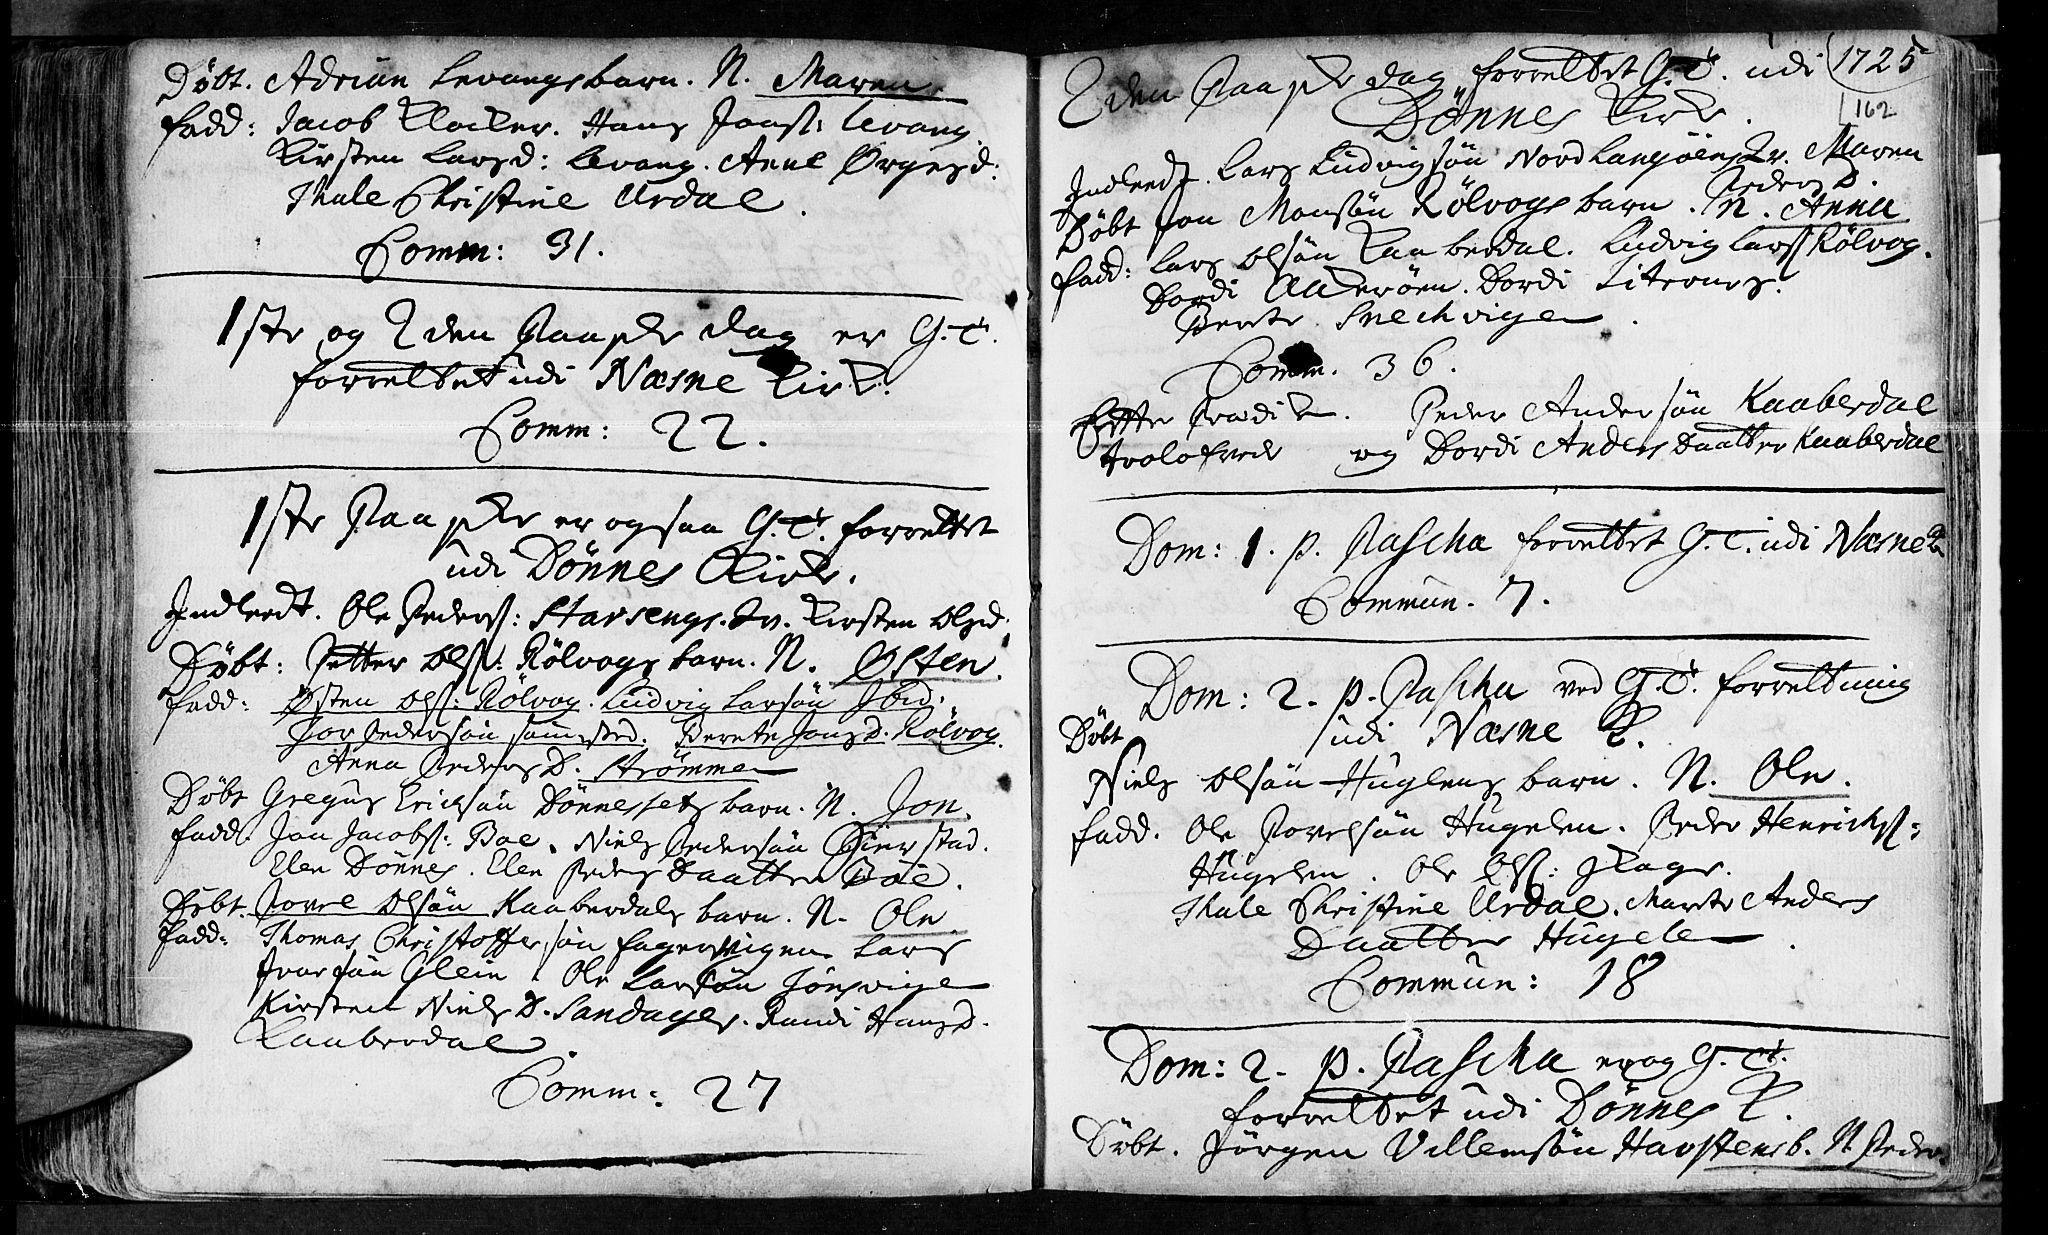 Døbt. Adrian Levangs barn. N. Maren.
fadd: Jacob Klocker. Hans Jons: Levang
Kirsten Larsd: Levang. Anne Ørgesd:
Thale Christine Urdal.
Comm: 31.
1ste og 2den Paaske dag er G.T.
forrettet udi Næsne Kirke.
Comm: 22.
1ste Paaske er ogsaa G.T. forrettet
udi Dønnes Kirke.
Indleedt. Ole Peders: Starsengs. Kirsten Olsd.
Døbt: Petter Ols: Rølvogs barn. N. Østen.
fadd: Østen Ols: Rølvog. Ludvig Larsøn Ibid.
Jon Pedersøn sammested. Berete Jonsd. Rølvog.
Anna Peders D. Strømmen
Døbt Gregus Ericksøn Dønnessets barn. N. Jon.
fadd. Jon Jacobs: Bøe. Niels Pedersøn Gierstad.
Elen Dønnes. Elen Peders Daatter Bøe.
Døbt. Povel Olsøn Kaaberdals barn. N. Ole
fadd: Thomas Christoffersøn fagervigen Lars
Ivarsøn Glein. Ole Larsøn Jønsvigen
Kirsten Niels D. Sandager. Randi Hans D.
Kaaberdal.
Comm: 27
2den Paaske dag forrettet G.T. udi 1725
162
Dønnes Kirke.
Indleedt. Lars Ludvigsøn Nord Langøens Maren
Peders D.
Døbt Jon Monsøn Rølvogs barn. N. Anna
fadd: Lars Olsøn Kaaberdal. Ludvig Lars Rølvog.
Dordi Akerøen. Dordi Liternes.
Berete Snechvigen.
Comm. 36.
Effter Prædiken. Peder Andersøn Kaaberdal
trolofvede og Dordi Anders Daatter Kaaberdal
Dom: 1. p. Pascha forrettet G.T. udi Næsne K
Commun. 7.
Dom: 2. p. Pascha ved G.T. forretning
udi Næsne K.
Døbt
Niels Olsøn Huglens barn. N. Ole.
fadd. Ole Povelsøn Hugelen. Peder Henrichs:
Hugelen. Ole Ols:
Thale Christine Urdal. Marete Anders
Daatter Hugelen.
Commun: 18
Dom: 2. p. Pascha er og G.T.
forrettet udi Dønnes K.
Døbt. Jørgen Villemsøn Havstens b. N Peder